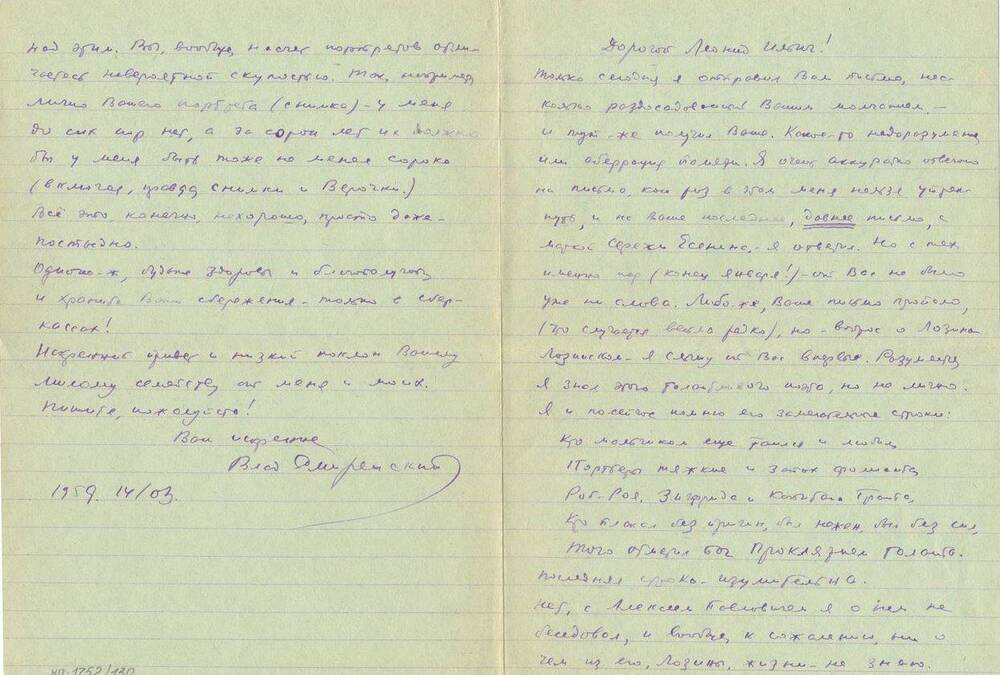 Дорогой Леонид Ильич!
Только сегодня я отправил Вам письмо, нес-
колько раздосадованный Вашим молчанием –
и тут-же получил Ваше. Какое-то недоразумение
или аберрация памяти. Я очень аккуратно отвечаю
на письма, как раз в этом меня нельзя упрек-
нуть, и на Ваше последнее, давнее письмо, с
Сережи Есенина, – я ответил. Но с тех
именно пор (конец января!) – от Вас не было
уже ни слова. Либо-же, Ваше письмо пропало,
(что случается весьма редко), но – вопрос о Лозина-
Лозинском – я слышу от Вас впервые. Разумеется
я знал этого талантливого поэта, но не лично.
Я и посейчас помню его замечательные строки:
Кто мальчиком еще таился и любил
Портьеры тяжкие и запах фолианта
Роб-Роя, Зигфрида и Капитана Гранта,
Кто плакал без причин, был нежен, был без сил,
Того отметил бог Проклятием Таланта.
Последняя строка – изумительна.
Нет, с Алексеем Павловичем я о нем не
беседовал, и вообще, к сожалению, ни о
чем из его, Лозины, жизни – не знаю.
над этим. Вы, вообще, насчет портретов отли-
чаетесь невероятной скупостью. Так, например,
лично Вашего портрета (снимка) – у меня
до сих пор нет, а за сорок лет их должно
бы у меня быть тоже не менее сорока
(включая, правда снимки и Верочки.)
Всё это, конечно, нехорошо, просто даже –
постыдно.
Однако-ж, будьте здоровы и благополучны
и храните Ваши сбережения – только в сбер-
кассах!
Искренний привет и низкий поклон Вашему
милому семейству от меня и моих.
Пишите, пожалуйста!
Ваш искренне
Влад
1959. 14/03.
КП-1752/130